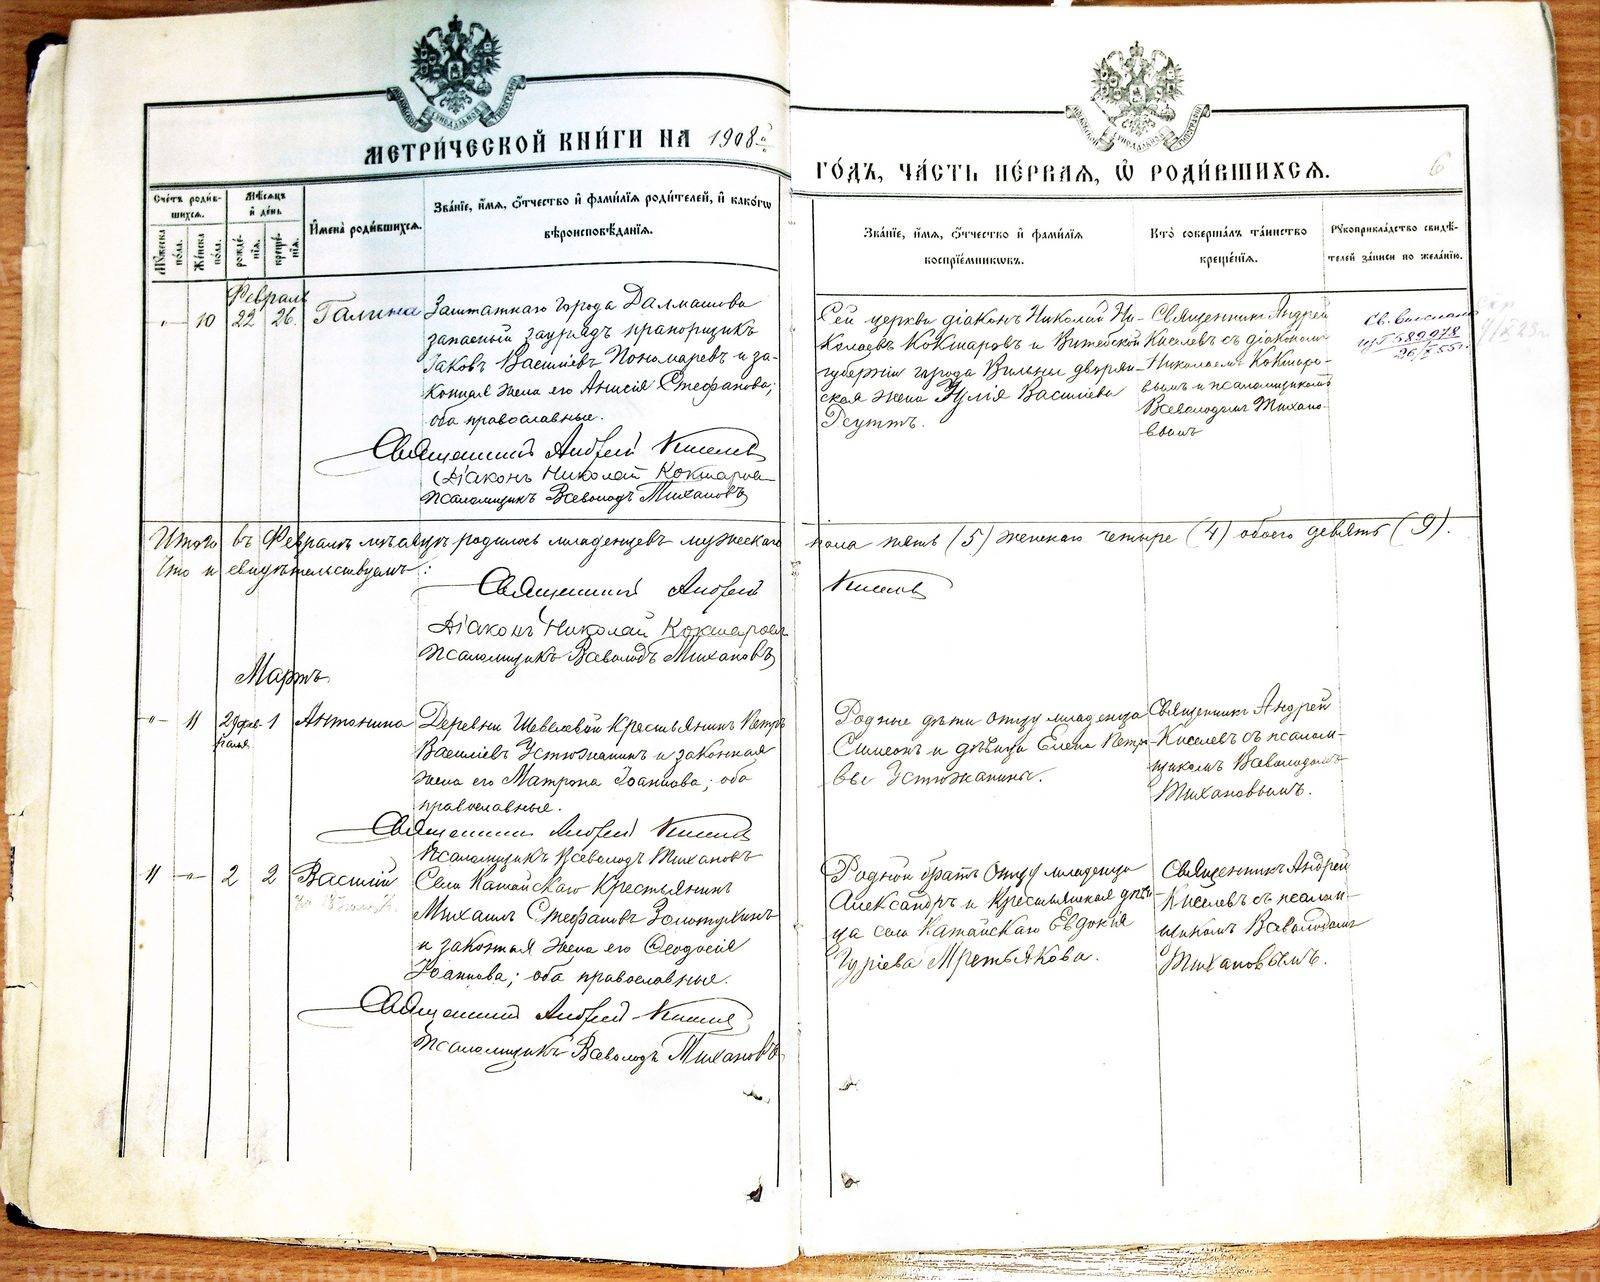 МЕТРИ́ЧЕСКОЙ КНИ́ГИ НА 1908й
ГО́ДЪ, ЧА́СТЬ ПЕ́РВАЯ, Ѡ҆ РОДИ́ВШИХСЯ.
6
Сче́тъ роди́в-
шихся.
Мѣ́сяцъ
и҆ де́нь
Мꙋ́жеска
по́ла.
Же́нска
по́ла.
рожде́-
нїя.
креще́-
нїя.
И҆мена̀ роди́вшихся.
Зва́нїе, и҆́мя, ѻ҆́тчество и҆ фами́лїя роди́телей, и҆ како́гѡ
вѣроисповѣ́данїя.
Зва́нїе, и҆́мя, ѻ҆́тчество и҆ фами́лїя
воспрїе́мникѡвъ.
Кто̀ соверша́лъ та́инство
креще́нїя.
Рꙋкоприкла́дство свидѣ́-
телей за́писи по жела́нїю.
Февраль
„ 10 22 26.
Галина
Заштатнаго города Далматова
запасный зауряд прапорщикъ
Іаковъ Василіевъ Пономаревъ и за-
конная жена его Анисія Стефанова;
оба православные.
Священникъ Андрей Киселевъ
Діаконъ Николай Кокшаровъ
Псаломщикъ Всеволодъ Тихановъ
Сей церкви діаконъ Николай Ни-
колаевъ Кокшаровъ и Витебской
губерніи города Вильны дворян-
ская жена Юлія Василіева
Священникъ Андрей
Киселевъ съ діакономъ
Николаемъ Кокшаро-
вымъ и псаломщикомъ
Всеволодомъ Тихано-
вымъ
Св. выслано
Итого въ Февралѣ мѣсяцѣ родилось младенцевъ мужескаго
пола пять (5) женскаго четыре (4) обоего девять (9).
что и свидѣтельствуемъ:
Священникъ Андрей
Киселевъ
Діаконъ Николай Кокшаровъ
Псаломщикъ Всеволодъ Тихановъ
Мартъ
„ 11 29 фев- 1
раля
Антонина
Деревни Шевелевой крестьянинъ Петръ
Василіевъ Устюжанинъ и законная
жена его Матрона Іоаннова; оба
православные.
Священникъ Андрей Киселевъ
Псаломщикъ Всеволодъ Тихановъ
Родные дѣти отцу младенца
Симеонъ и дѣвица Елена Петро-
вы Устюжанины.
Священникъ Андрей
Киселевъ съ псалом-
щикомъ Всеволодомъ
Тихановымъ.
11 „ 2 2
Василій
Села Катайскаго крестьянинъ
Михаилъ Стефановъ Золотухинъ
и законная жена его Ѳеодосія
Іоаннова; оба православные.
Священникъ Андрей Киселевъ
Псаломщикъ Всеволодъ Тихановъ
Родной братъ отцу младенца
Александръ и крестьянская дѣви-
ца села Катайскаго Евдокія
Гуріева Третьякова.
Священникъ Андрей
Киселевъ съ псалом-
щикомъ Всеволодомъ
Тихановымъ.